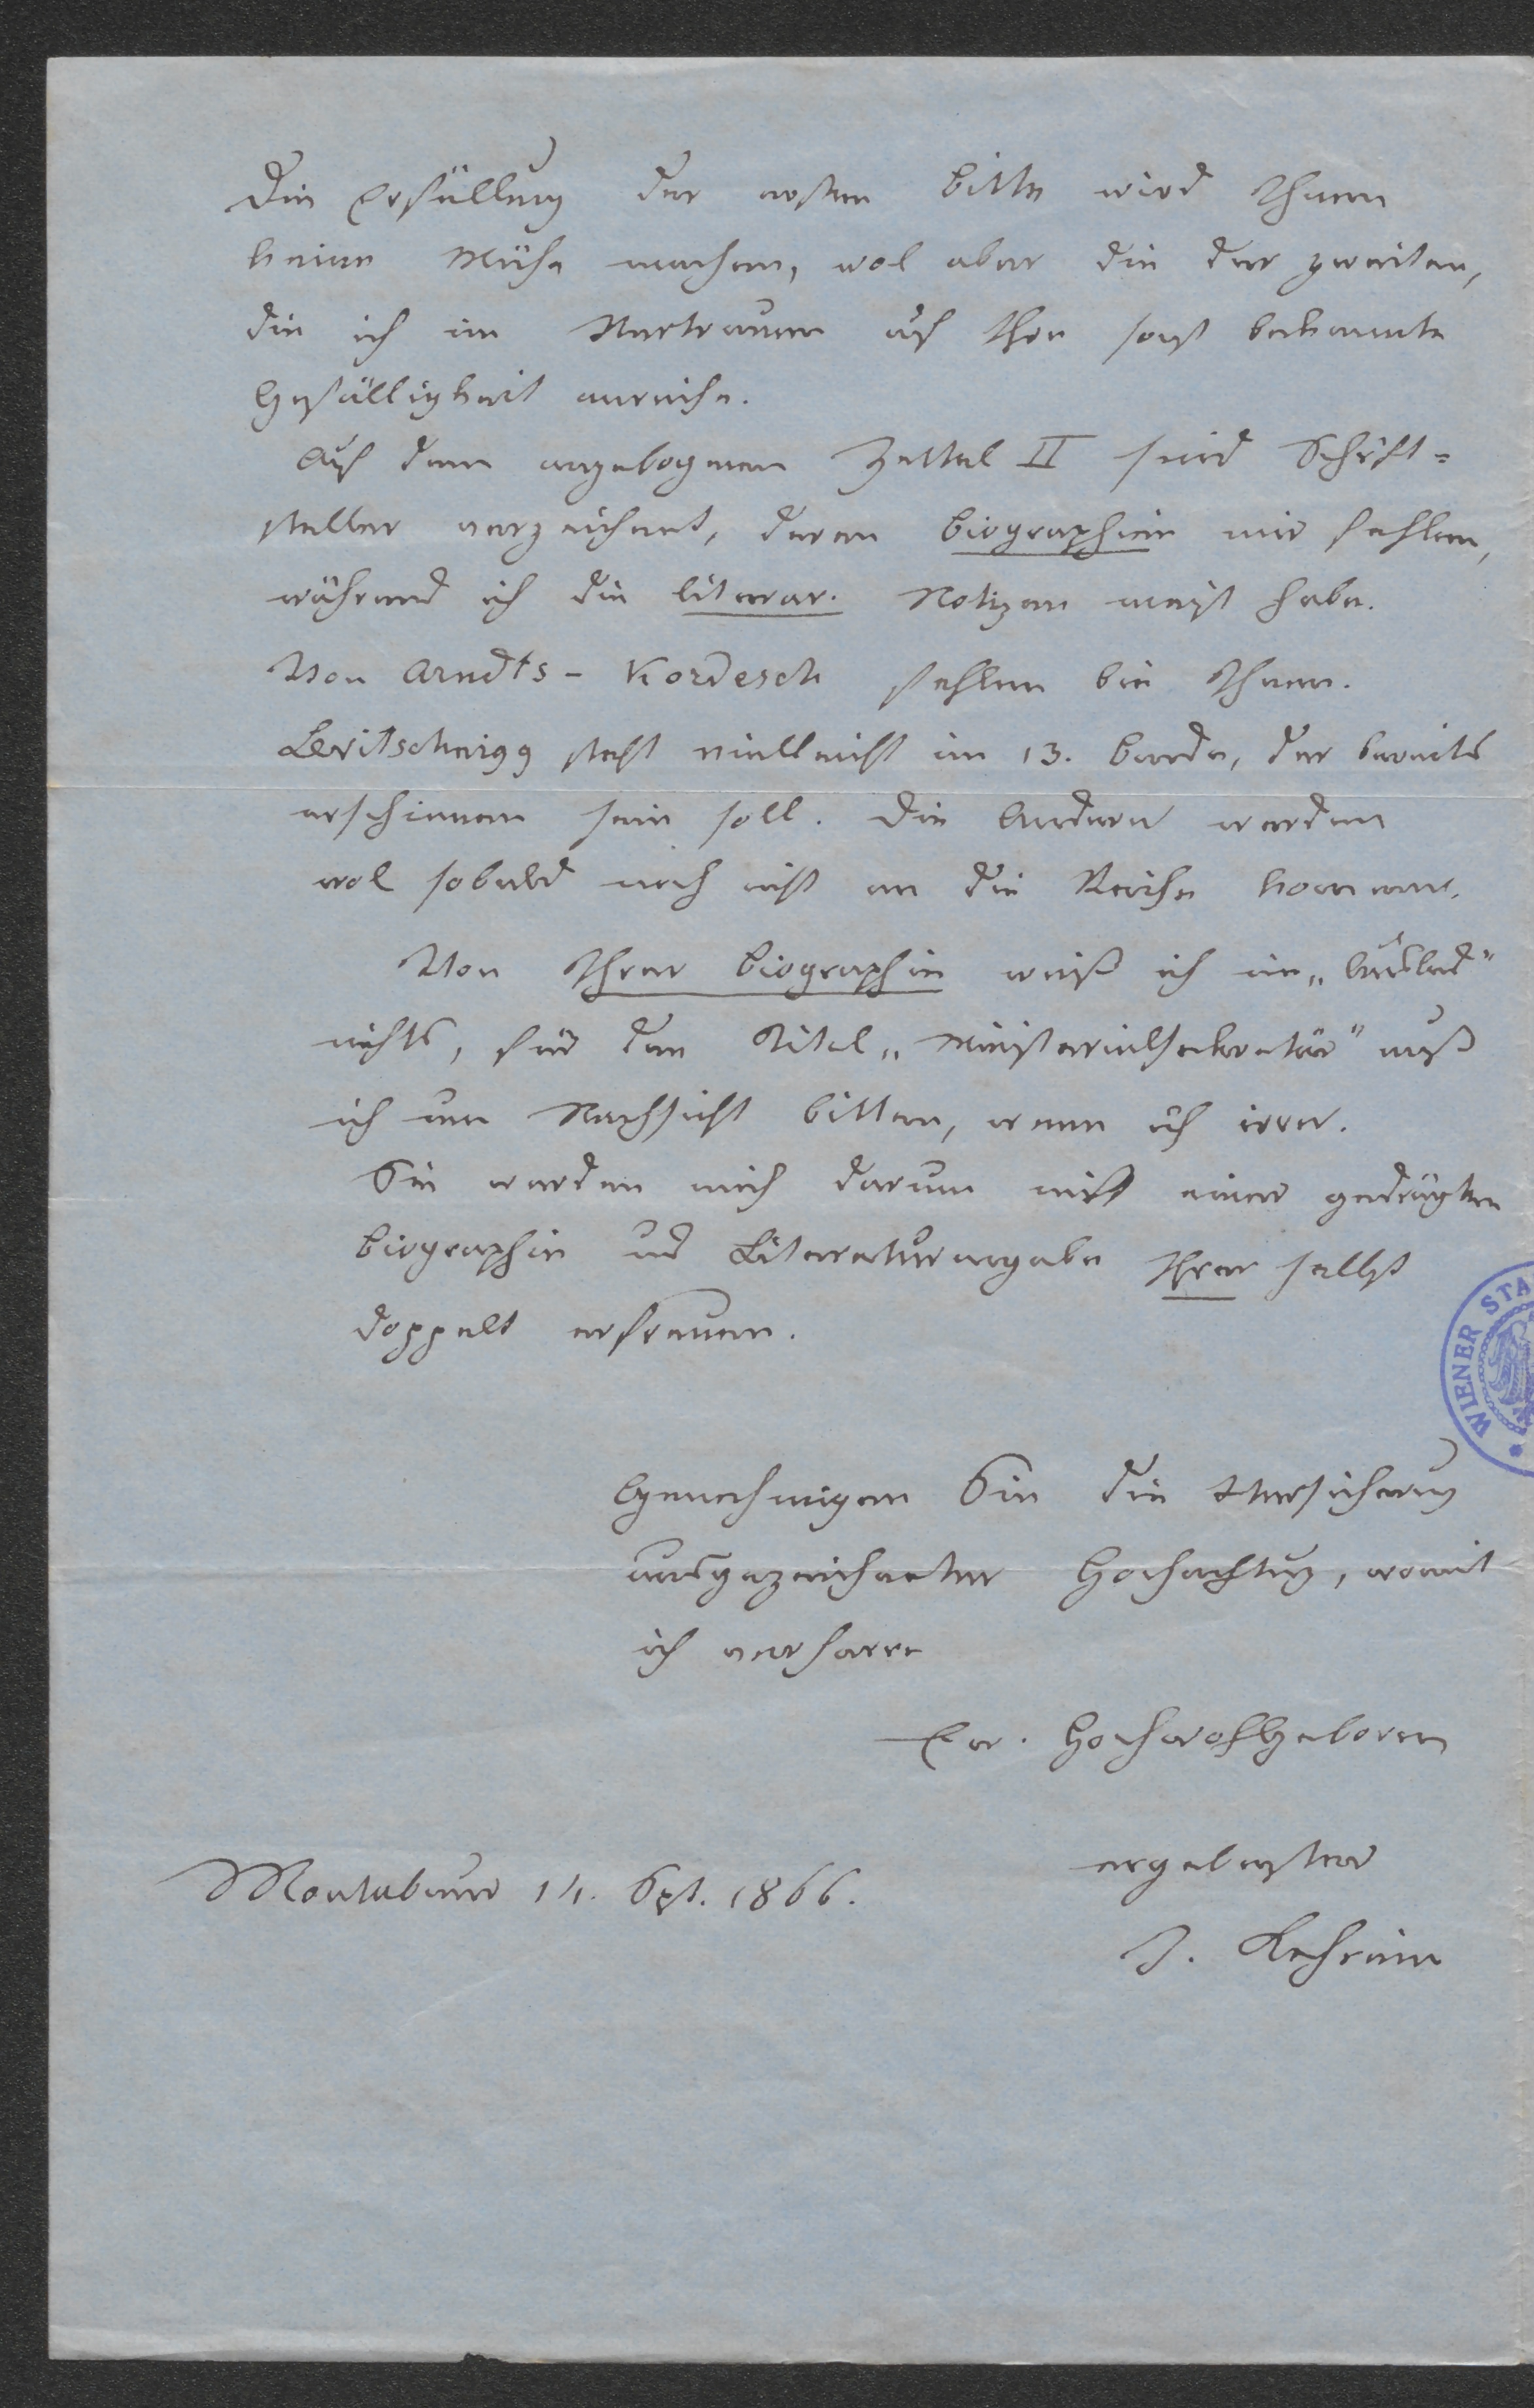 Die Erfüllung der ersten Bitte wird Ihnen
keine Mühe machen, wol aber die der zweiten,
die ich im Vertrauen auf Ihre sonst bekannte
Gefälligkeit anreihe.
Auf dem angebogenen Zettel II sind Schrift=
steller verzeichnet, deren Biographien mir fehlen,
während ich die literar. Notizen meist habe.
Von Arndts - Kordesch fehlen bei Ihnen.
Levitschnigg steht vielleicht im 13. Bande, der bereits
erschienen sein soll. Die Andern werden
wol sobald noch nicht an die Reihe kommen.
Von Ihrer Biographie weiß ich im „Ausland"
nichts, für den Titel „Ministerialsekretär" muß
ich um Nachsicht bitten, wenn ich irre.
Sie werden mich darum mit einer gedrängten
Biographie und Literaturangabe Ihrer selbst
doppelt erfreuen.
Genehmigen Sie die Versicherung
ausgezeichneter Hochachtung, womit
ich verharre
Ew. Hochwohlgeboren
ergebenster
Montabaur 14. Spt. 1866.
J. Kehrein
WIENER STA